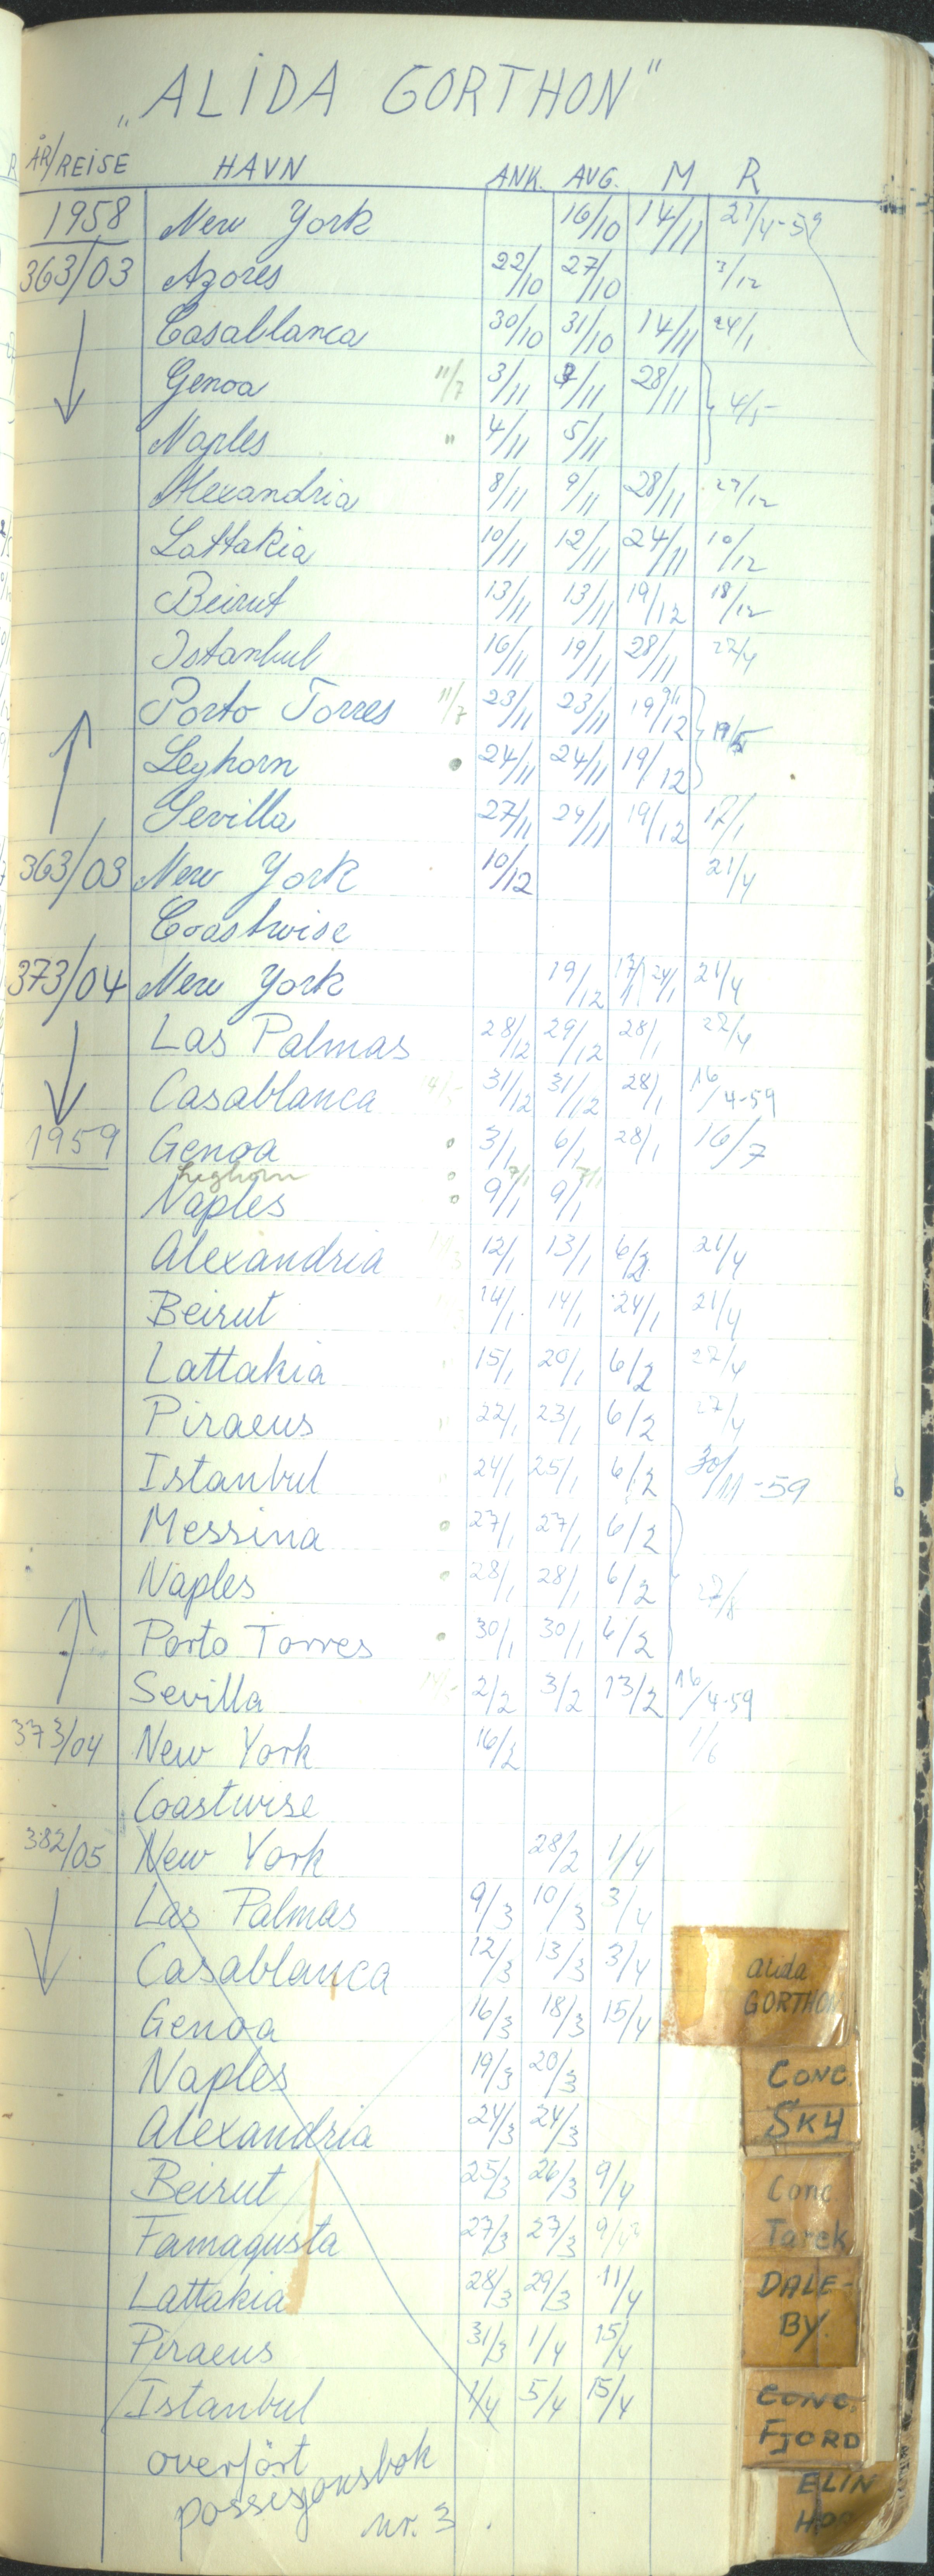 „ALIDA GORTHON"
ÅR/REISE HAVN ANK. AVG. M R
1958 New York 16/10 14/11 21/4-59
363/03 Azores 22/10 27/10 3/12
Casablanca 30/10 31/10 14/11 24/1
Genoa 11/7 3/11 /11 28/11 4/5
Naples " 4/11 5/11
Alexandria 8/11 9/11 28/11 27/12
Lattakia 10/11 12/11 24/11 10/12
Beirut 13/11 13/11 19/12 18/12
Istanbul 16/11 19/11 28/11 22/4
Porto Torres 11/7 23/11 23/11 19/12 19/5
Leghorn 24/11 24/11 19/12
Sevilla 27/11 29/11 19/12 12/1
363/03 New York 10/12 21/4
Coastwise
373/04 New York 19/12 21/4
Las Palmas 28/12 29/12 28/1 22/4
Casablanca 31/12 31/12 28/1 16/4-59
1959 Genoa 3/1 6/1 28/1 16/7
Leghorn 7/1 7/1
Naples 9/1 9/1
Alexandria 12/1 13/1 6/2 21/4
Beirut 14/1 14/1 24/1 21/4
Lattakia 15/1 20/1 6/2 22/4
Piraeus 22/1 23/1 6/2 27/4
Istanbul 24/1 25/1 6/2 30/11-59
Messina 27/1 27/1 6/2
Naples 28/1 28/1 6/2
Porto Torres 30/1 30/1 6/2
Sevilla 2/2 3/2 13/2 16/4-59
373/04 New York 16/2 1/6
Coastwise
382/05 New York 28/2 1/4
Las Palmas 9/3 10/3 3/4
Casablanca 12/3 13/3 3/4
Genoa 16/3 18/3 15/4
Naples 19/3 20/3
Alexandria 24/3 24/3
Beirut 25/3 26/3 9/4
Famagusta 27/3 27/3 9/4
Lattakia 28/3 29/3 11/4
Piraeus 31/3 1/4 15/4
Istanbul 1/4 5/4 15/4
overført
possisjonsbok
nr. 3
Alida
GORTHON
CONC.
SKY
Conc
Tarek
DALE-
BY.
CONC.
FJORD
ELIN